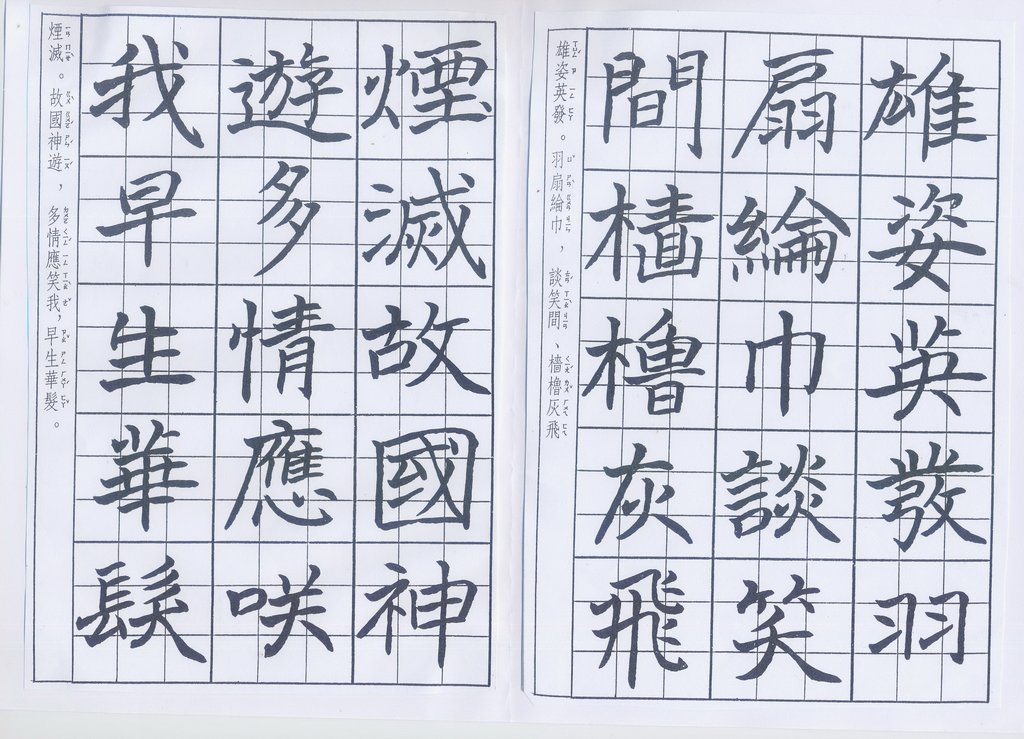 雄姿英發羽
扇綸巾談笑
間檣櫓灰飛
雄姿英發。羽扇綸巾，談笑間、檣櫓灰飛
煙滅故國神
遊多情應咲
我早生華髮
煙滅。故國神遊，多情應笑我，早生華髮。